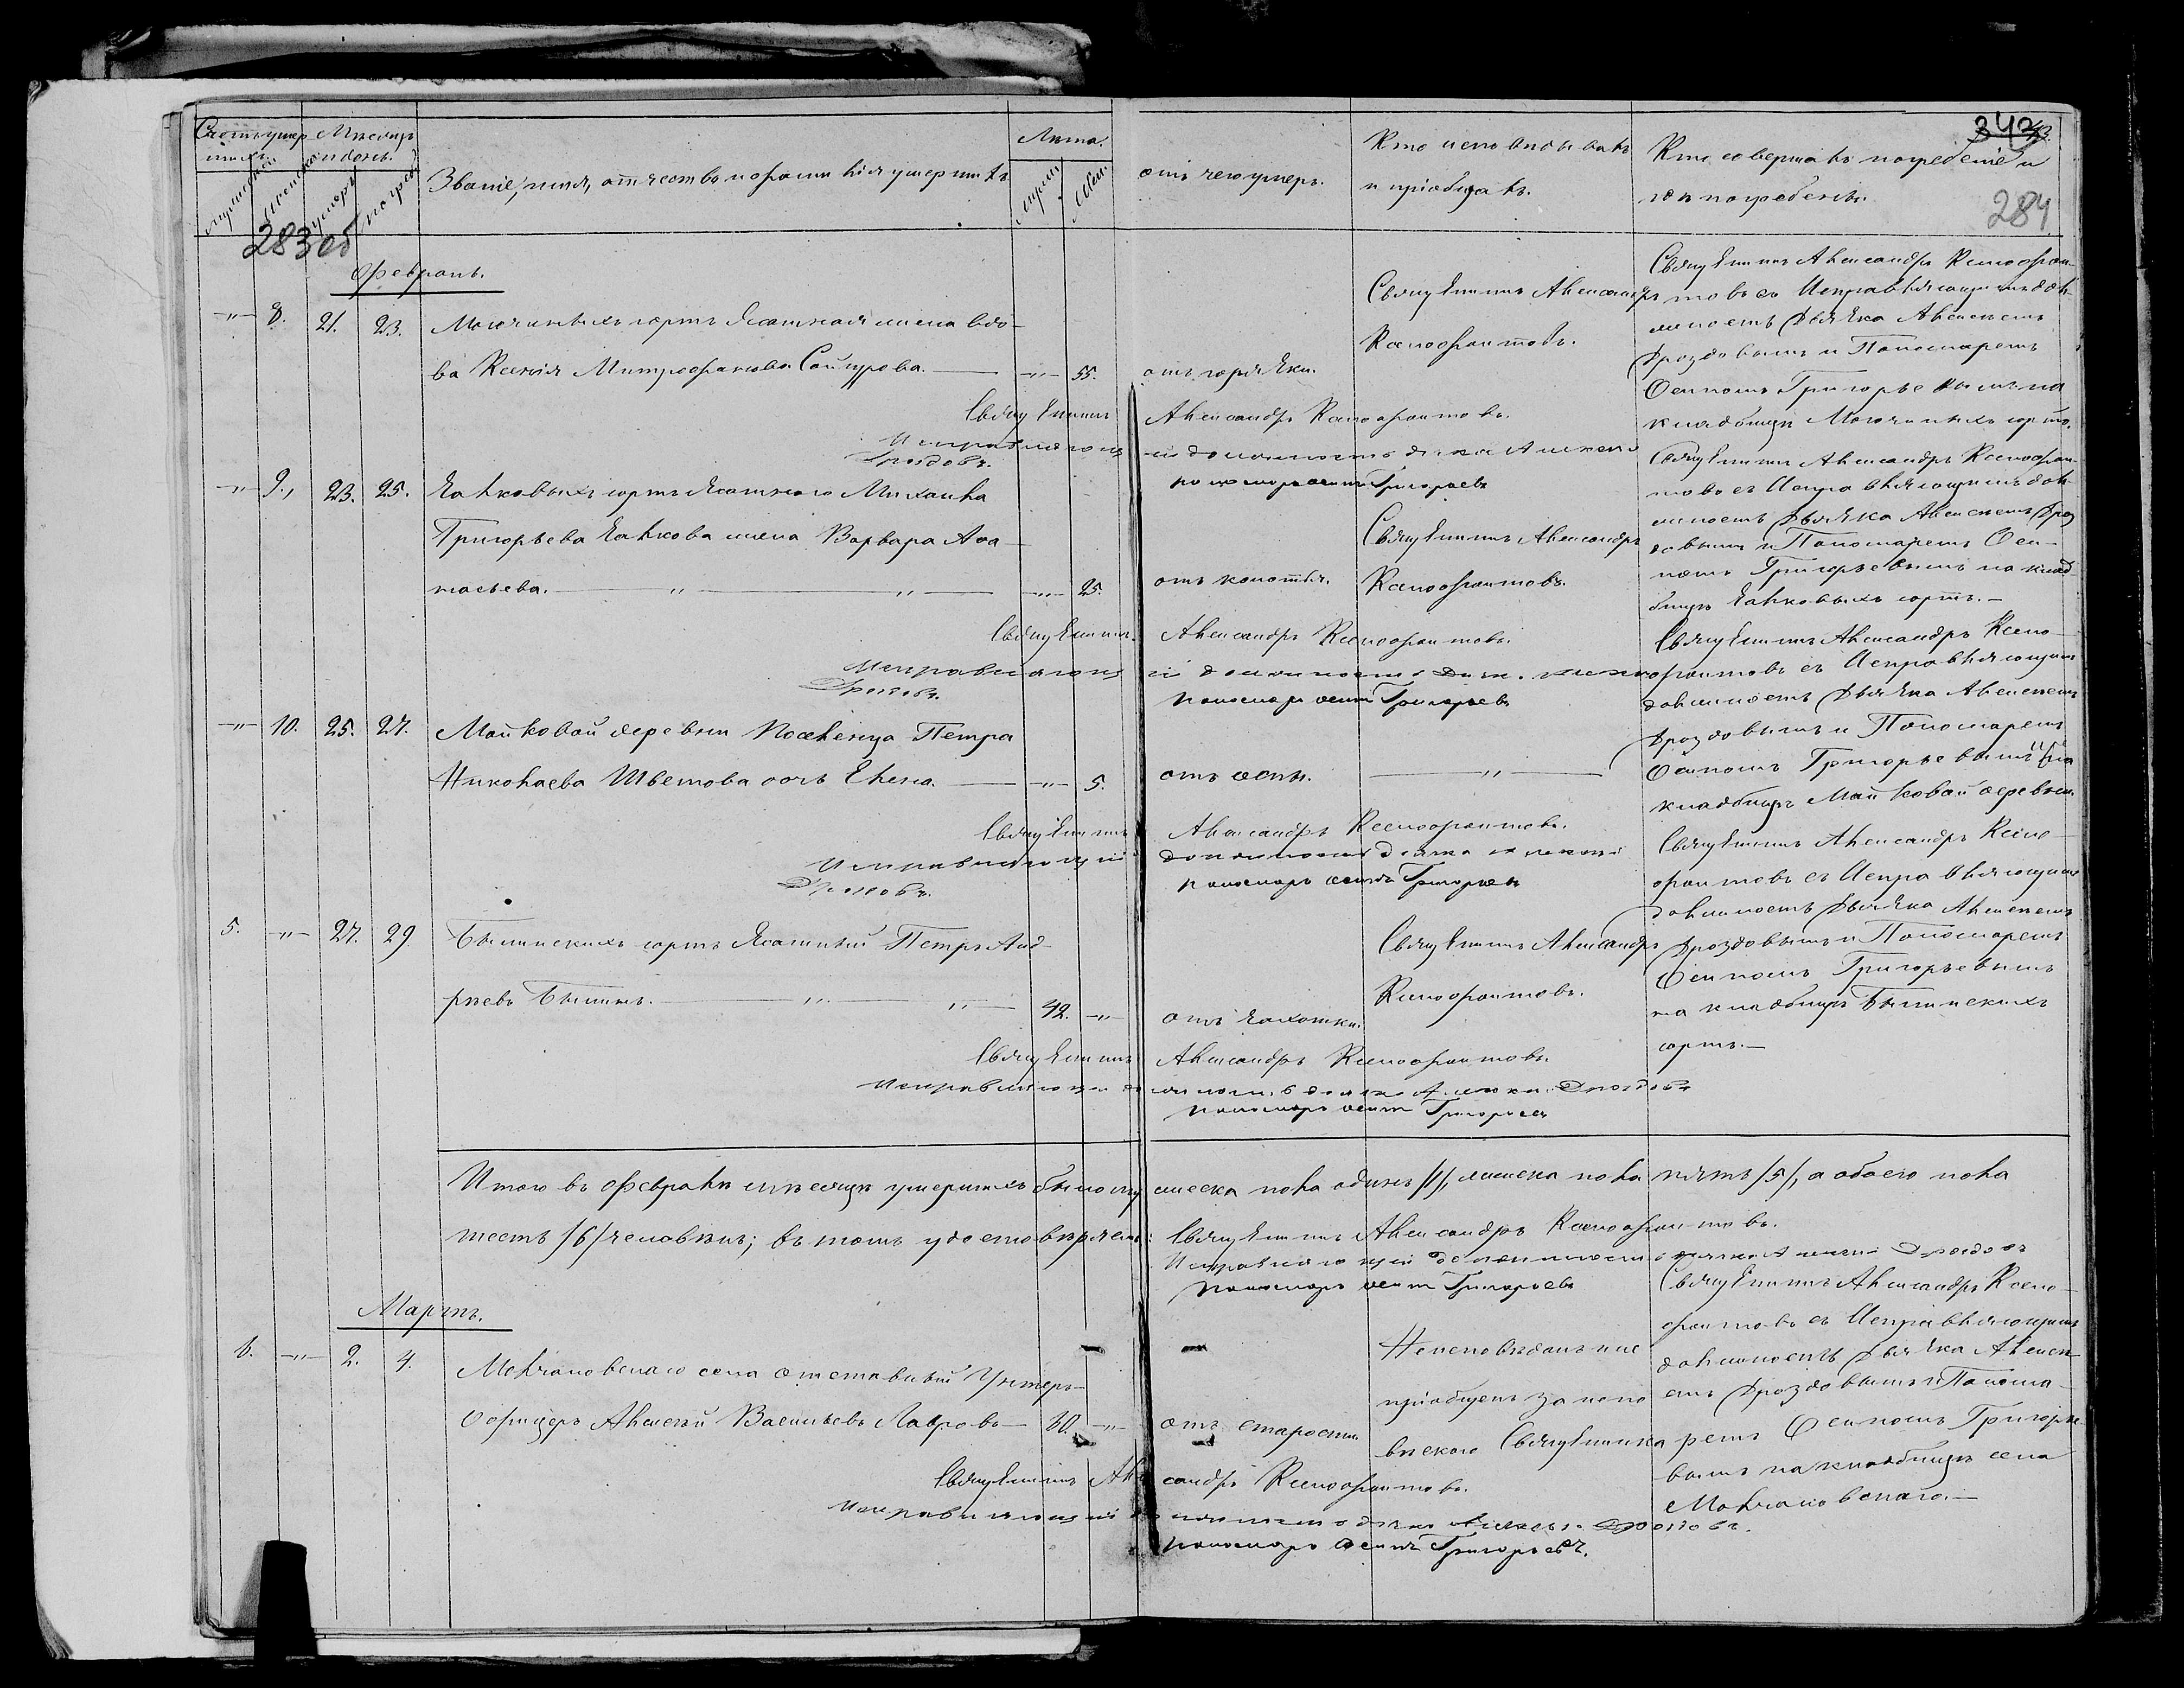 Счетъ умер
шихъ.
Мѣсяцъ
и день.
Званіе, имя, отчество и фамилія умершихъ
Лѣта.
отъ чего умеръ.
Кто исповѣдывалъ
и пріобщалъ.
Кто совершалъ погребеніе и
гдѣ погребенъ.
343
284
283об
Февраль.
-"- 8. 21. 23.
юртъ Ясашная жена вдо-
ва Ксенія Митрофанова Сайгурова. -"- 55.
отъ горячки.
Священникъ Александръ
Ксенофонтовъ.
Священникъ Александръ Ксенофон-
товъ съ Исправляющимъ дол-
жность Дьячка Алексѣемъ
Дроздовымъ и Пономаремъ
Осипомъ Григорьевымъ на
кладбищѣ юртъ.
Священникъ Александръ Ксенофонтовъ.
Исправляющій должность дьячка Алексѣй
Дроздовъ.
пономарь осипъ Григорьевъ
-"- 9. 23. 25.
Еалковыхъ юртъ Ясашнаго Михаила
Григорьева Еалкова жена Варвара Афа-
насьева. -"- 25.
отъ колотья.
Священникъ Александръ
Ксенофонтовъ.
Священникъ Александръ Ксенофон-
товъ съ Исправляющимъ дол-
жность Дьячка Алексѣемъ Дроз
довымъ и Пономаремъ Оси-
помъ Григорьевымъ на клад
бищѣ Еалковыхъ юртъ.
Священникъ Александръ Ксенофонтовъ.
Исправляющій должность дьяч.
Дроздовъ.
пономарь осипъ Григорьевъ
-"- 10. 25. 27.
Майковой деревни Поселенца Петра
Николаева Шветова дочь Елена. -"- 5.
отъ оспы. -"-
Священникъ Александръ Ксено-
фонтовъ съ Исправляющимъ
должность Дьячка Алексѣемъ
Дроздовымъ и Пономаремъ
Осипомъ Григорьевымъ на
кладбищѣ Майковой деревни
Священникъ Александръ Ксенофонтовъ.
Исправляющій должность дьячка Алексѣй
Дроздовъ.
пономарь осипъ Григорьевъ
5. -"- 27. 29.
Былинскихъ юртъ Ясашный Петръ Анд-
рѣевъ Былинъ. 42. -"-
отъ чахотки.
Священникъ Александръ
Ксенофонтовъ.
Священникъ Александръ Ксено-
фонтовъ съ Исправляющимъ
должность Дьячка Алексѣемъ
Дроздовымъ и Пономаремъ
Осипомъ Григорьевымъ
на кладбищѣ Былинскихъ
юртъ.
Священникъ Александръ Ксенофонтовъ.
Исправляющій должность дьячка Алексѣй Дроздовъ
пономарь осипъ Григорьевъ
Итого въ февралѣ мѣсяцѣ умершихъ было мужеска пола одинъ /1/, женска пола пять /5/, а обоего пола
шесть /6/ человѣкъ; въ томъ удостовѣряемъ: Священникъ Александръ Ксенофонтовъ.
Исправляющій должность дьячка Алексѣй Дроздовъ
пономарь осипъ Григорьевъ
Мартъ.
6. -"- 2. 4.
Молчановскаго села отставный Унтеръ-
Офицеръ Алексѣй Васильевъ Лавровъ 80. -"-
отъ старости.
Неисповѣданъ и не
пріобщенъ за неи
Священника
Священникъ Александръ Ксено-
фонтовъ съ Исправляющимъ
должность Дьячка Алексѣ-
емъ Дроздовымъ и Понома-
ремъ Осипомъ Григорье-
вымъ на кладбищѣ села
Молчановскаго.
Священникъ Александръ Ксенофонтовъ.
Исправляющій должность дьячка Алексѣй Дроздовъ.
пономарь осипъ Григорьевъ.